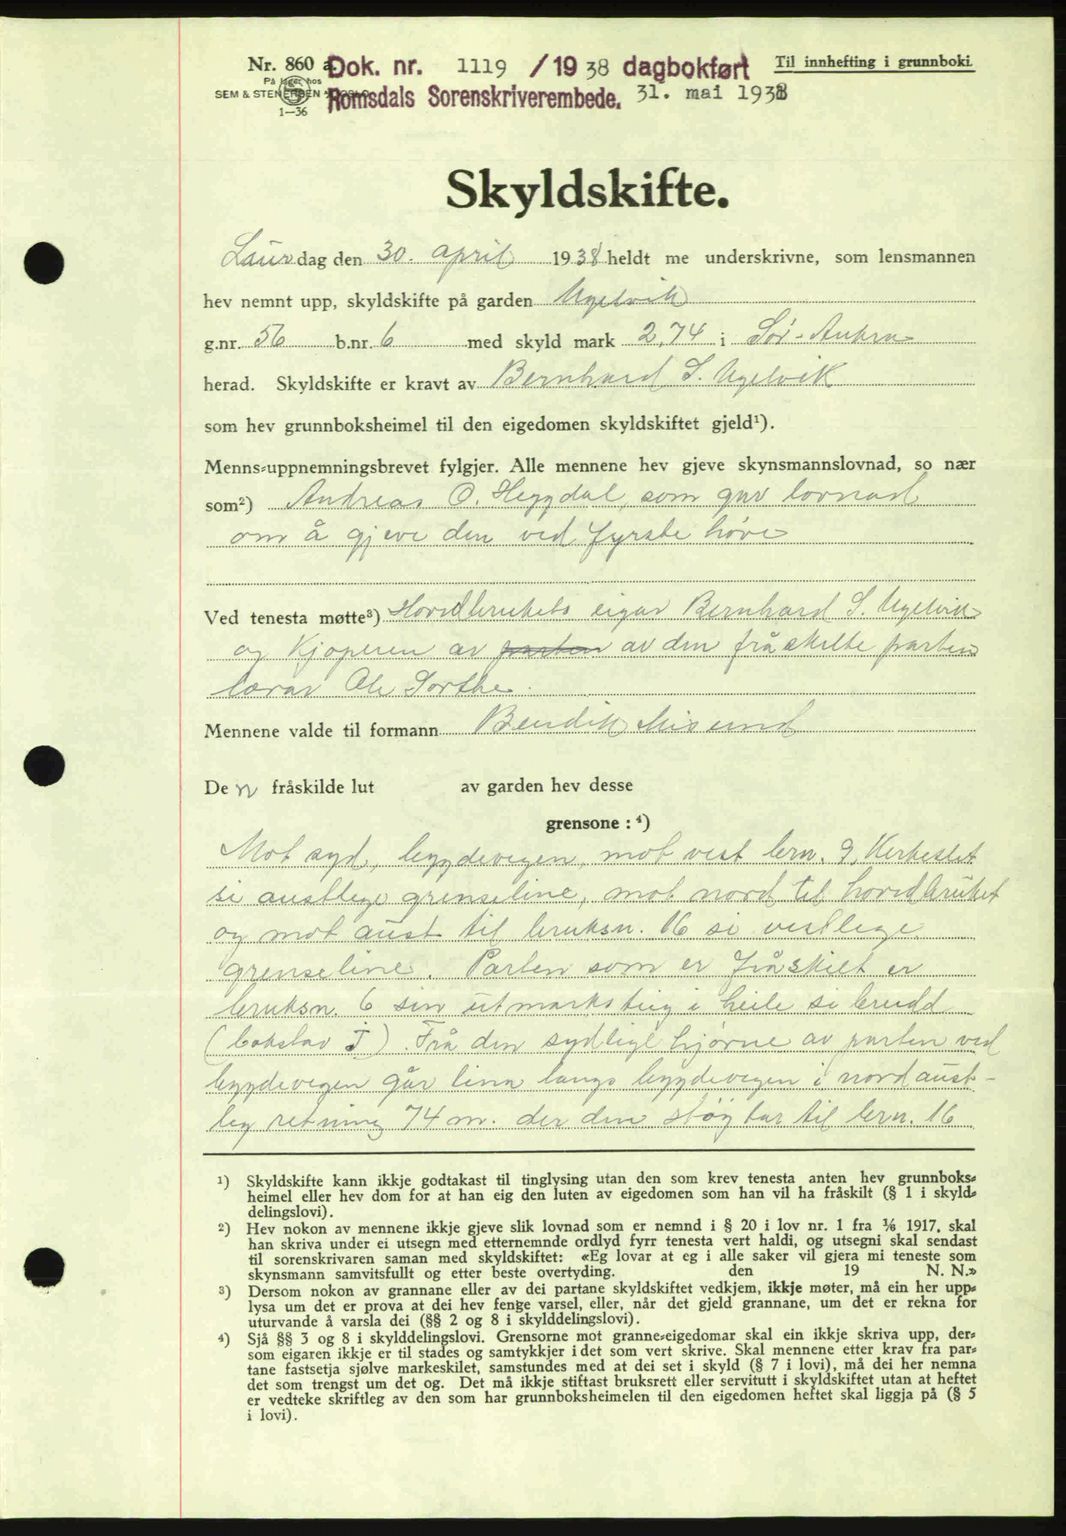 Nr. 860 a.
På lager hos
SEM & STENERSEN A/S OSLO
1—36
Dok. nr. 1119 /1938 dagbokført
Romsdals Sorenskriverembede. 31. mai 1938
Til innhefting i grunnboki.
Skyldskifte.
Laurdag den 30. april 1938 heldt me underskrivne, som lensmannen
hev nemnt upp, skyldskifte på garden Ugelvik
g.nr. 56 b.nr. 6 med skyld mark 2,74 i Sør-Aukra
herad. Skyldskifte er kravt av Bernhard S. Ugelvik
som hev grunnboksheimel til den eigedomen skyldskiftet gjeld¹).
Menns-uppnemningsbrevet fylgjer. Alle mennene hev gjeve skynsmannslovnad, so nær
som²) Andreas O. Heggdal, som gav lovnad
om å gjeve den ved fyrste høve
Ved tenesta møtte³) Hovdbrukets eigar Bernhard S. Ugelvik
og Kjøperen av parten av den fråskilte parten
lærar Ole Sorthe.
Mennene valde til formann Bendik Misund
Den fråskilde lut av garden hev desse
grensone : ⁴)
Mot syd, bygdevegen, mot vest brn. 9, Kirkeslet
si austlege grenseline, mot nord til hovdbruket
og mot aust til bruksn. 16 si vestlege
grenseline. Parten som er fråskilt er
bruksn. 6 sin utmarksteig i heile si breidd
(bokstav J). Frå den sydlige hjørne av parten ved
bygdevegen går lina langs bygdevegen i nordaust-
leg retning 74 m. der den støytar til brn. 16
¹) Skyldskifte kann ikkje godtakast til tinglysing utan den som krev tenesta anten hev grunnboks-
heimel eller hev dom for at han eig den luten av eigedomen som han vil ha fråskilt (§ 1 i skyld-
delingslovi).
²) Hev nokon av mennene ikkje gjeve slik lovnad som er nemnd i § 20 i lov nr. 1 fra 1/6 1917, skal
han skriva under ei utsegn med etternemnde ordlyd fyrr tenesta vert haldi, og utsegni skal sendast
til sorenskrivaren saman med skyldskiftet: «Eg lovar at eg i alle saker vil gjera mi teneste som
skynsmann samvitsfullt og etter beste overtyding. den 19 N. N.»
³) Dersom nokon av grannane eller av dei partane skyldskiftet vedkjem, ikkje møter, må ein her upp-
lysa um det er prova at dei hev fenge varsel, eller, når det gjeld grannane, um det er rekna for
uturvande å varsla dei (§§ 2 og 8 i skylddelingslovi).
⁴) Sjå §§ 3 og 8 i skylddelingslovi. Grensorne mot granne-eigedomar skal ein ikkje skriva upp, der-
som eigaren ikkje er til stades og samtykkjer i det som vert skrive. Skal mennene etter krav fra par-
tane fastsetja sjølve markeskilet, samstundes med at dei set i skyld (§ 7 i lovi), må dei her nemna
det som trengst um det og. Det må ikkje stiftast bruksrett eller servitutt i skyldskiftet utan at heftet
er vedteke skriftleg av den som har grunnboksheimelen til den eigedomen heftet skal liggja på (§ 5
i lovi).